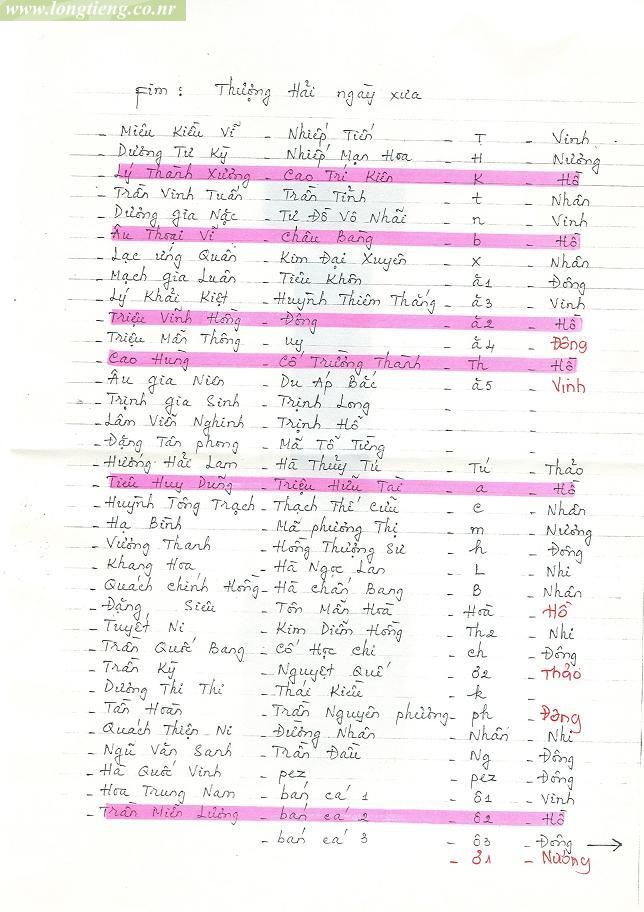 www.longtieng.co.nr
Fim : Thượng Hải ngày xưa
- Miêu Kiều Vĩ - Nhiếp Tiến - T - Vinh
- Dương Tư Kỳ - Nhiếp Mạn Hoa - H - Nương
- Lý Thành Xương - Cao Tri Kiên - K - Hồ
- Trần Vinh Tuấn - Trần Tỉnh - t - Nhân
- Dương gia Nặc - Tư Đồ Vô Nhãi - n - Vinh
- Âu Thoại Vĩ - Châu Bang - b - Hồ
- Lạc ứng Quân - Kim Đại Xuyên - x - Nhân
- Mạch gia Luân - Tiêu Khôn - ă1 - Đông
- Lý Khải Kiệt - Huỳnh Thiêm Thắng - ă3 - Vinh
- Triệu Vĩnh Hồng - Đông - ă2 - Hồ
- Triệu Mẫn Thông - uy - ă4 - Đông
- Cao Hùng - Cố Trường Thành - Th - Hồ
- Âu gia Niên - Du Ap Bắc - ă5 - Vinh
- Trịnh gia Sinh - Trịnh Long - -
- Lâm Viễn Nghinh - Trịnh Hổ - -
- Đặng Tân phong - Mã Tố Tùng - -
- Hướng Hải Lam - Hà Thủy Tú - Tú - Thảo
- Tiêu Huy Dũng - Triệu Hữu Tài - a - Hồ
- Huỳnh Tông Trạch - Thạch Thế Cửu - c - Nhân
- Hạ Bình - Mã phương Thị - m - Nương
- Vương Thanh - Hồng Thượng Sư - h - Đông
- Khang Hoa - Hà Ngọc Lan - L - Nhi
- Quách chinh Hồng - Hà chấn Bang - B - Nhân
- Đặng Siêu - Tôn Mãn Hoà - Hoà - Hồ
- Tuyết Ni - Kim Diễm Hồng - Th2 - Nhi
- Trần Quốc Bang - Cố Học Chi - ch - Đông
- Trần Kỳ - Nguyệt Quế - ô2 - Thảo
- Dương Thi Thi - Thái Kiều - k -
- Tần Hoàn - Trần Nguyên phương - ph - Đông
- Quách Thiện Ni - Đường Nhân - Nhân - Nhi
- Ngũ Văn Sanh - Trần Đầu - Ng - Đông
- Hà Quốc Vinh - pez - pez - Đông
- Hoa Trung Nam - bán cá 1 - ô1 - Vinh
- Trần Miễn Lương - bán cá 2 - ô2 - Hồ
- bán cá 3 - ô3 - Đông →
- ở1 - Nương